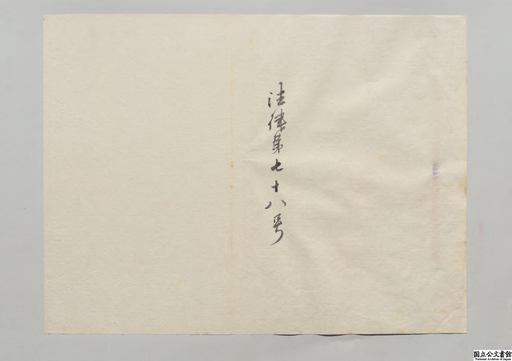 法律第七十八号
国立公文書館
National Archives of Japan